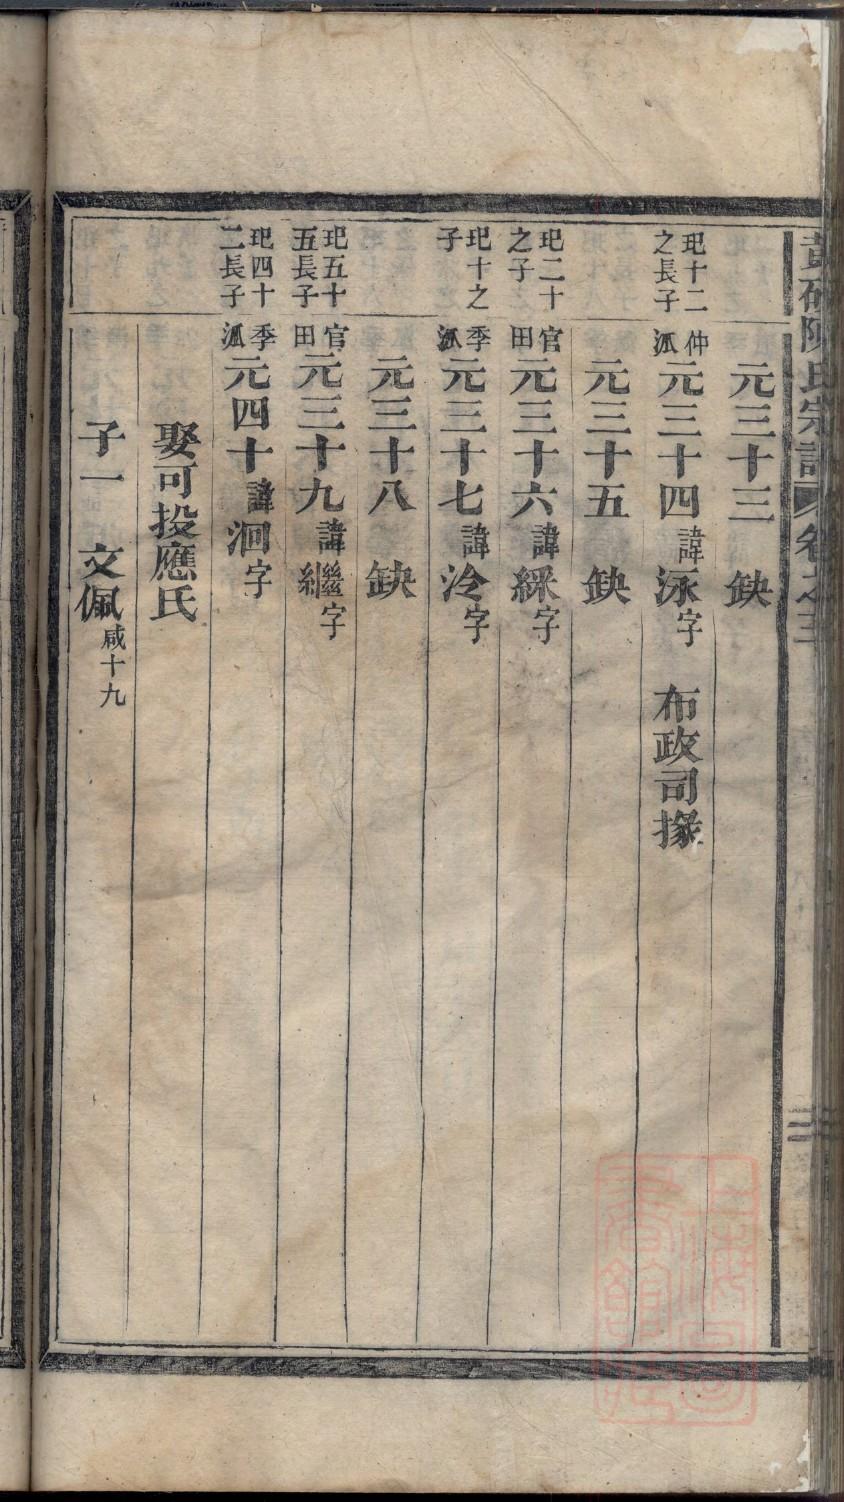 陳氏宗譜 卷之三
元三十三 缺
玘十二之長子 仲派 元三十四 諱泳字 布政司掾
元三十五 缺
玘二十之子 官田 元三十六 諱綵字
玘十之子 季派 元三十七 諱泠字
元三十八 缺
玘五十五長子 官田 元三十九 諱繼字
玘四十二長子 季派 元四十 諱洄字
娶可投應氏
子一 文佩咸十九